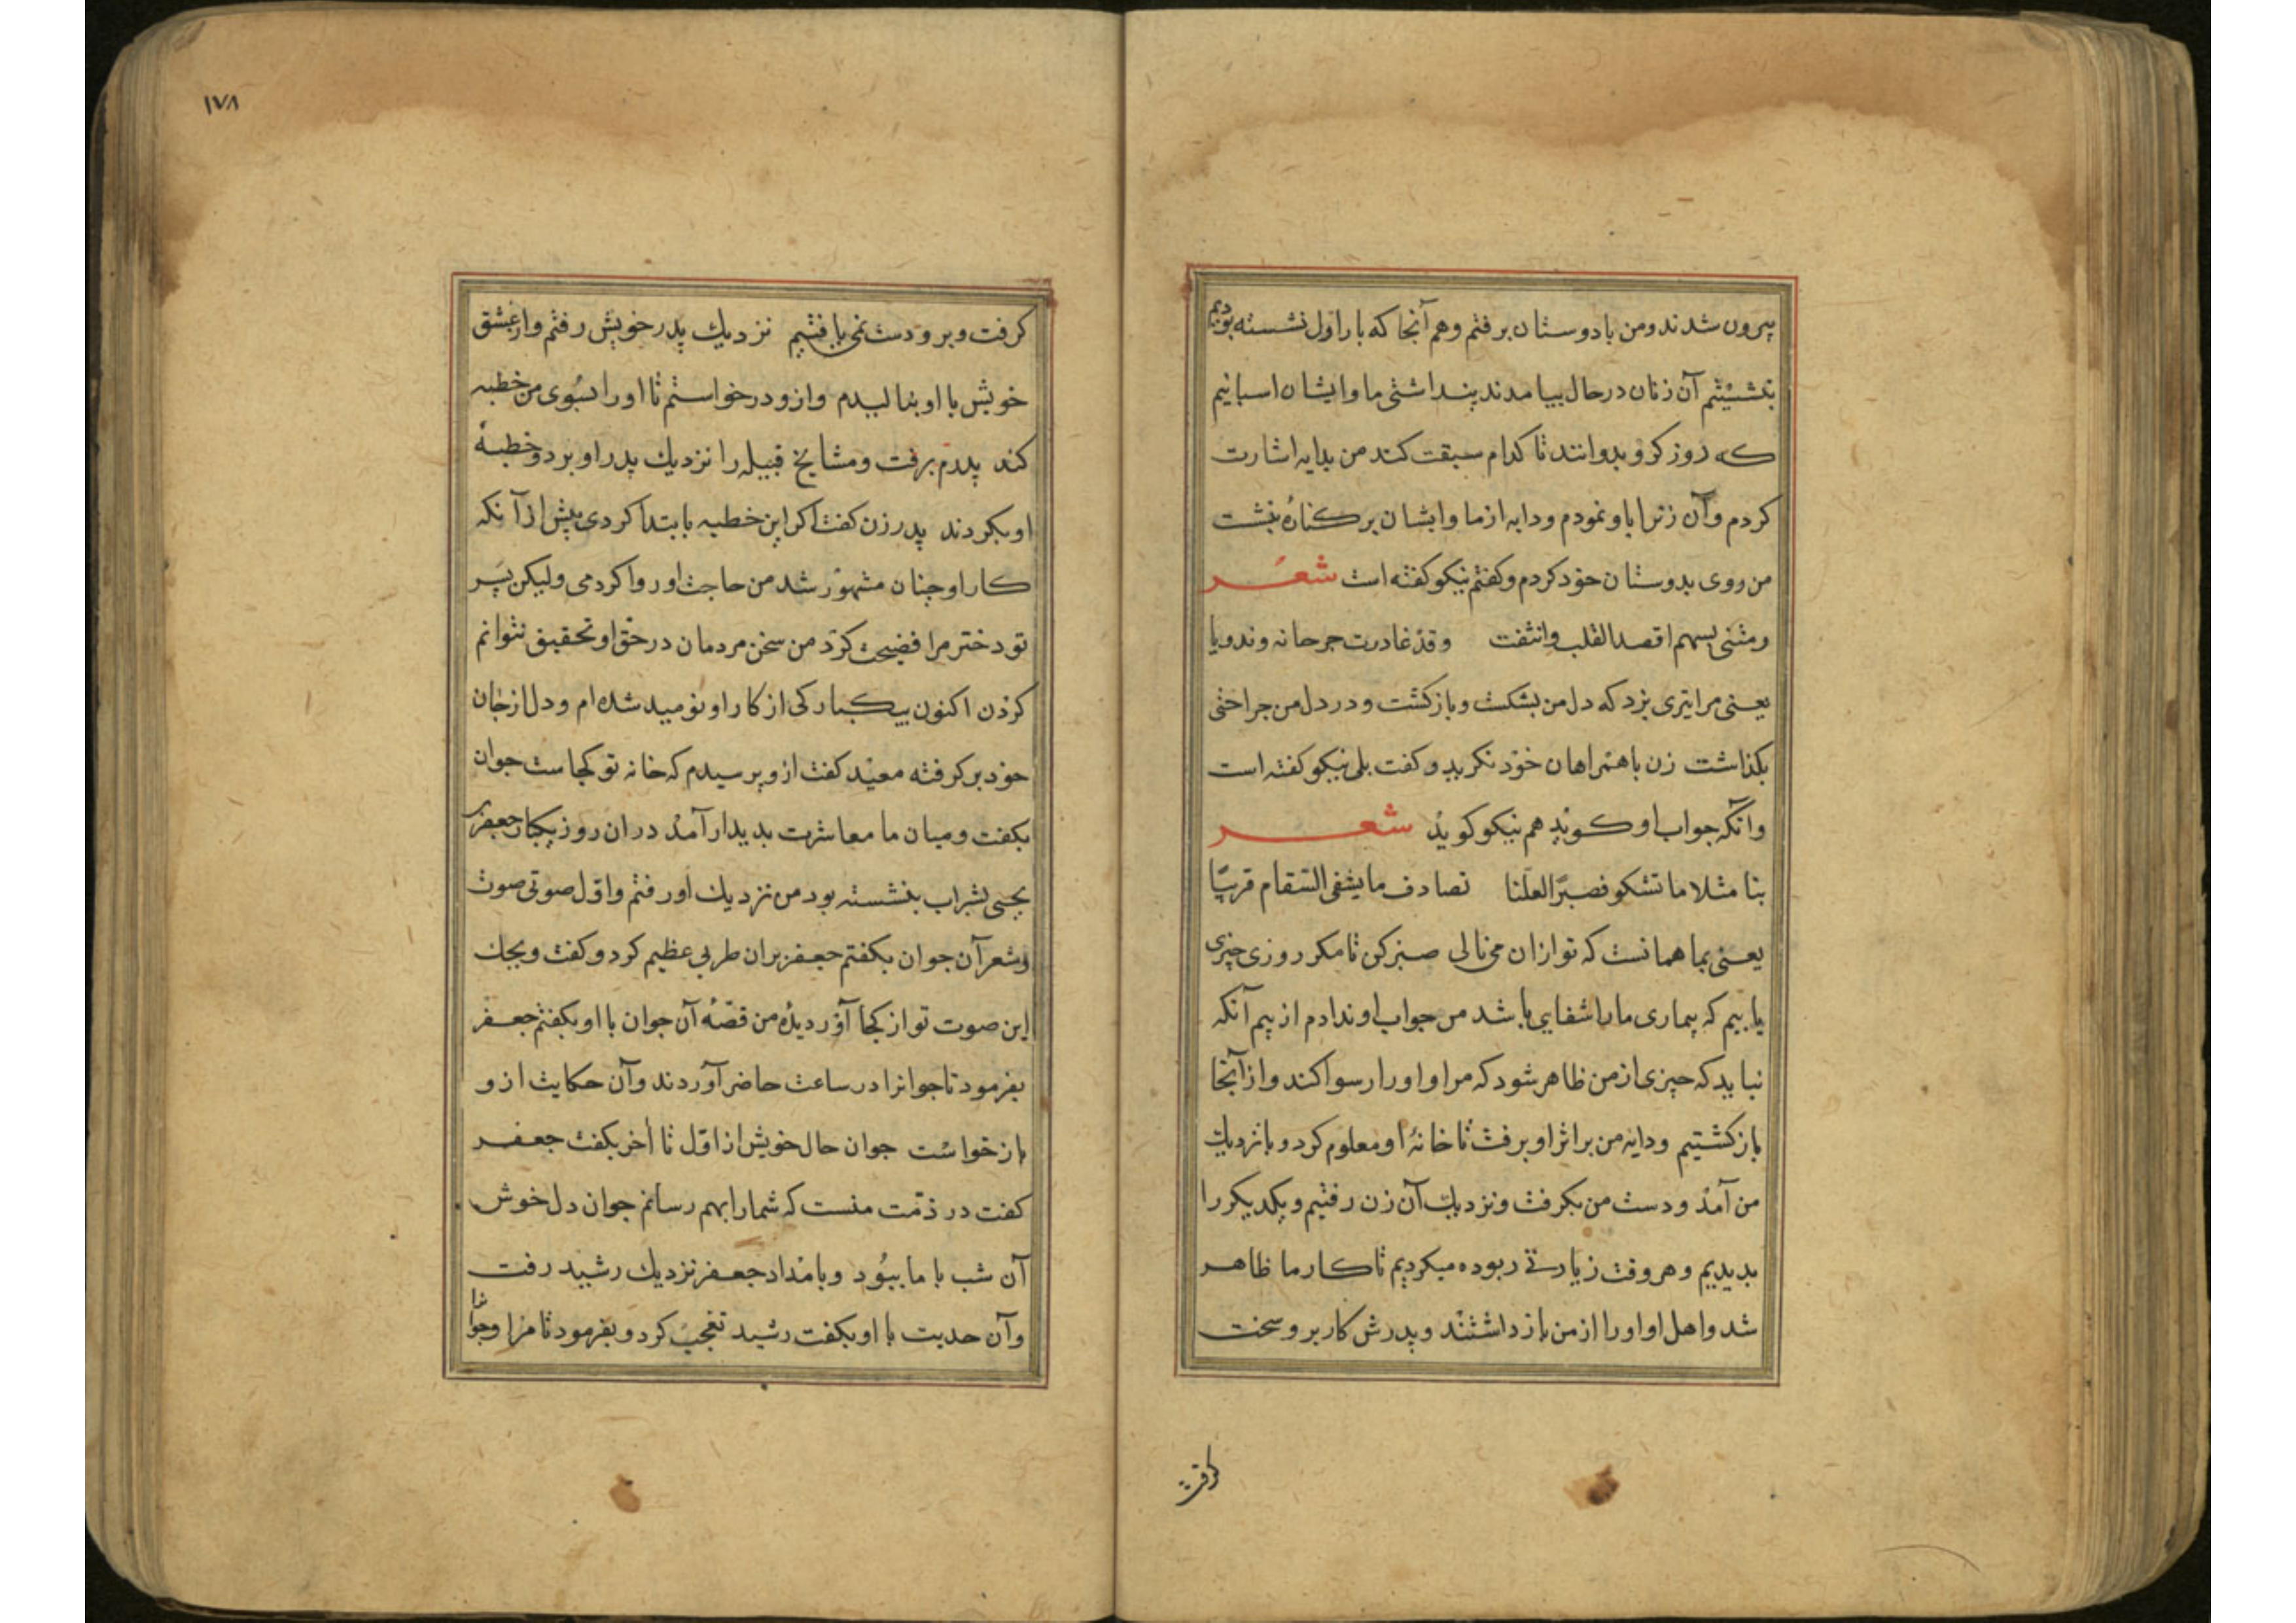 بیرون شدند ومن با دوستان برفتم وهم آنجا که بار اول نشسته بودیم
بنشستیم آن زنان درحال بیامدند پنداشتی ما وایشان اسبانیم
که روز کرو بدوانند تا کدام سبقت کند من بدایه اشارت
کردم وآن زنرا باو نمودم ودایه ازما وایشان برکناره بنشست
من روی بدوستان خود کردم وکفتم نیکو کفته است شعر
رمتنی بسهم اقصد القلب وانثنت وقد غادرت جرحا به وندوبا
یعنی مرا تیری بزد که دل من بشکست وبازکشت ودر دل من جراحتی
بکذاشت زن با همراهان خود نکرید وکفت بلی نیکو کفته است
وآنکه جواب او کوید هم نیکو کوید شعر
بنا مثل ما تشکو فصبرا لعلنا نصادف ما یشفی السقام قریبا
یعنی بما همانست که تو ازان می نالی صبر کن تا مکر روزی چیزی
یابیم که بیماری مارا شفایی باشد من جواب او ندادم از بیم آنکه
نباید که چیزی ازمن ظاهر شود که مرا واورا رسوا کند واز آنجا
بازکشتیم ودایه من براثر او برفت تا خانهٔ او معلوم کرد وبا نزدیك
من آمد ودست من بکرفت ونزدیك آن زن رفتیم ویکدیکررا
بدیدیم وهروقت زیارتی ربوده میکردیم تا کار ما ظاهر
شد واهل او اورا ازمن باز داشتند وپدرش کار برو سخت
کرفت
١٧٨
کرفت وبرو دست نمی یافتیم نزدیك پدر خویش رفتم واز عشق
خویش با او بنالیدم وازو درخواستم تا اورا بسوی من خطبه
کند پدرم برفت ومشایخ قبیله را نزدیك پدر او برد وخطبهٔ
او بکردند پدر زن کفت اکر این خطبه بابتدا کردی پیش ازآنکه
کار او چنان مشهور شد من حاجت او روا کردمی ولیکن پسر
تو دختر مرا فضیحت کرد من سخن مردمان درحق او تحقیق نتوانم
کردن اکنون بیکبارکی از کار او نومید شده ام ودل از جان
خود برکرفته معبد کفت ازو پرسیدم که خانه تو کجاست جوان
بکفت ومیان ما معاشرت بدیدار آمد دران روز بیکبار جعفر بن
یحیی بشراب بنشسته بود من نزدیك او رفتم واول صوتی صوت
وشعر آن جوان بکفتم جعفر بران طربی عظیم کرد وکفت ویحك
این صوت تو از کجا آوردیده من قصهٔ آن جوان با او بکفتم جعفر
بفرمود تا جوانرا در ساعت حاضر آوردند وآن حکایت ازو
بازخواست جوان حال خویش از اول تا آخر بکفت جعفر
کفت در ذمت منست که شمارا بهم رسانم جوان دل خوش
آن شب با ما ببود وبامداد جعفر نزدیك رشید رفت
وآن حدیث با او بکفت رشید تعجب کرد وبفرمود تا مرا وجوانرا